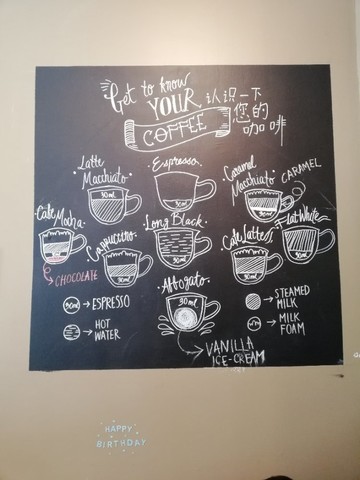 Get to know
YOUR
COFFEE
认识一下
您的
咖啡
Latte
Macchiato
30ml
Espresso
30ml
Caramel
Macchiato
CARAMEL
30ml
Cafe Mocha
30ml
CHOCOLATE
Cappuccino
30ml
Long Black
30ml
Cafe Latte
30ml
Flat White
30ml
Affogato
30ml
VANILLA
ICE-CREAM
30ml → ESPRESSO
HOT
WATER
STEAMED
MILK
MILK
FOAM
HAPPY
BIRTHDAY